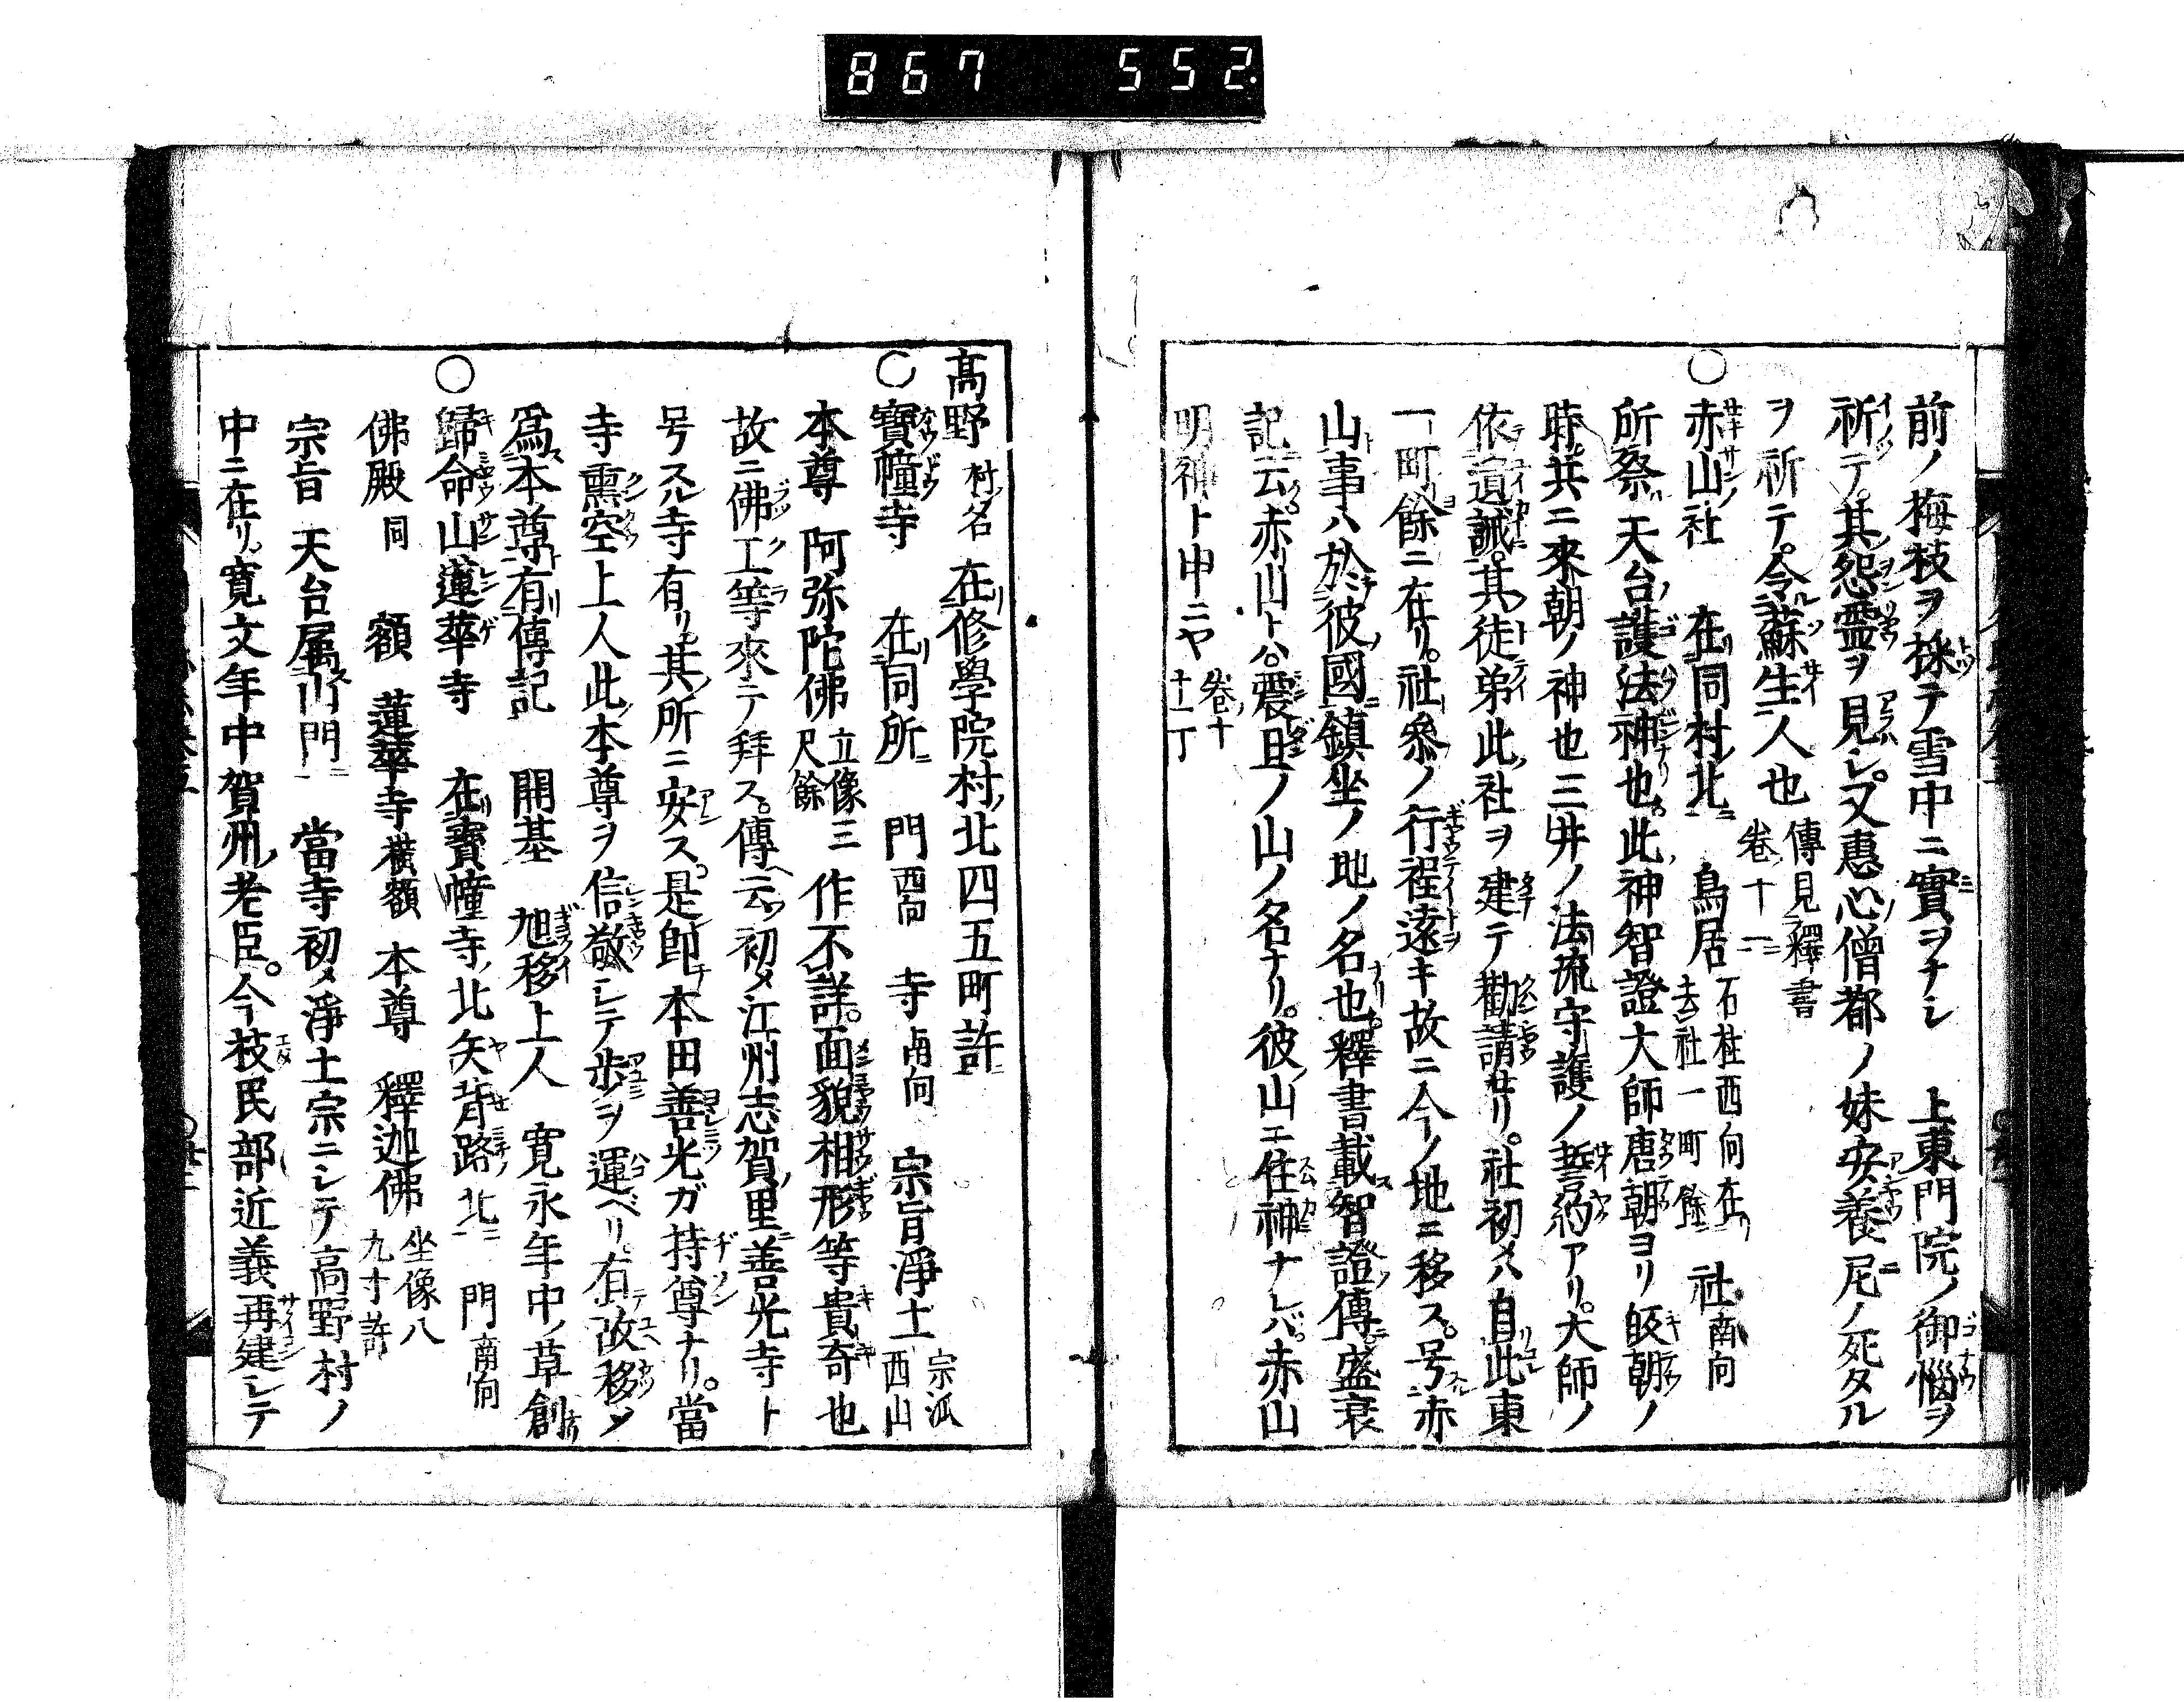 867 552
前ノ梅枝ヲ採テ雪中ニ實ヲナシ 上東門院ノ御惱ヲ
祈テ其怨靈ヲ見シ又惠心僧都ノ妹安養尼ノ死タル
ヲ祈テ令蘇生人也 傳見釋書卷十一
○赤山社 在同村北 鳥居 石柱西向在去社一町餘 社 南向
所祭 天台護法神也此神智證大師唐朝ヨリ皈朝ノ
時共ニ來朝ノ神也三井ノ法流守護ノ誓約アリ大師ノ
依遺誡其徒弟此社ヲ建テ勸請せリ社初メハ自此東
一町餘ニ在リ社參ノ行程遠キ故ニ今ノ地ニ移ス号赤
山事ハ於彼國鎮坐ノ地ノ名也釋書載智證傳盛衰
記云赤山トハ震旦ノ山ノ名ナリ彼山エ住神ナレバ赤山
明神ト申ニヤ 卷十 十一丁
高野 村名 在修學院村北四五町許
○寶幢寺 在同所 門 西向 寺 南向 宗旨淨土 宗派西山
本尊 阿弥陀佛 立像三尺餘 作不詳面貌相形等貴奇也
故ニ佛工等來テ拜ス傳云初メ江州志賀里善光寺ト
号スル寺有リ其所ニ安ス是卽本田善光ガ持尊ナリ當
寺熏空上人此本尊ヲ信敬シテ歩ヲ運ベリ有故移メ
爲本尊有傳記 開基 旭移上人 寛永年中草創
○歸命山蓮華寺 在寶幢寺北矢背路北 門 南向
佛殿 同 額 蓮華寺 橫額 本尊 釋迦佛 坐像八九寸許
宗旨 天台属山門 當寺初メ淨土宗ニシテ高野村ノ
中ニ在リ寛文年中賀州老臣今枝民部近義再建シテ